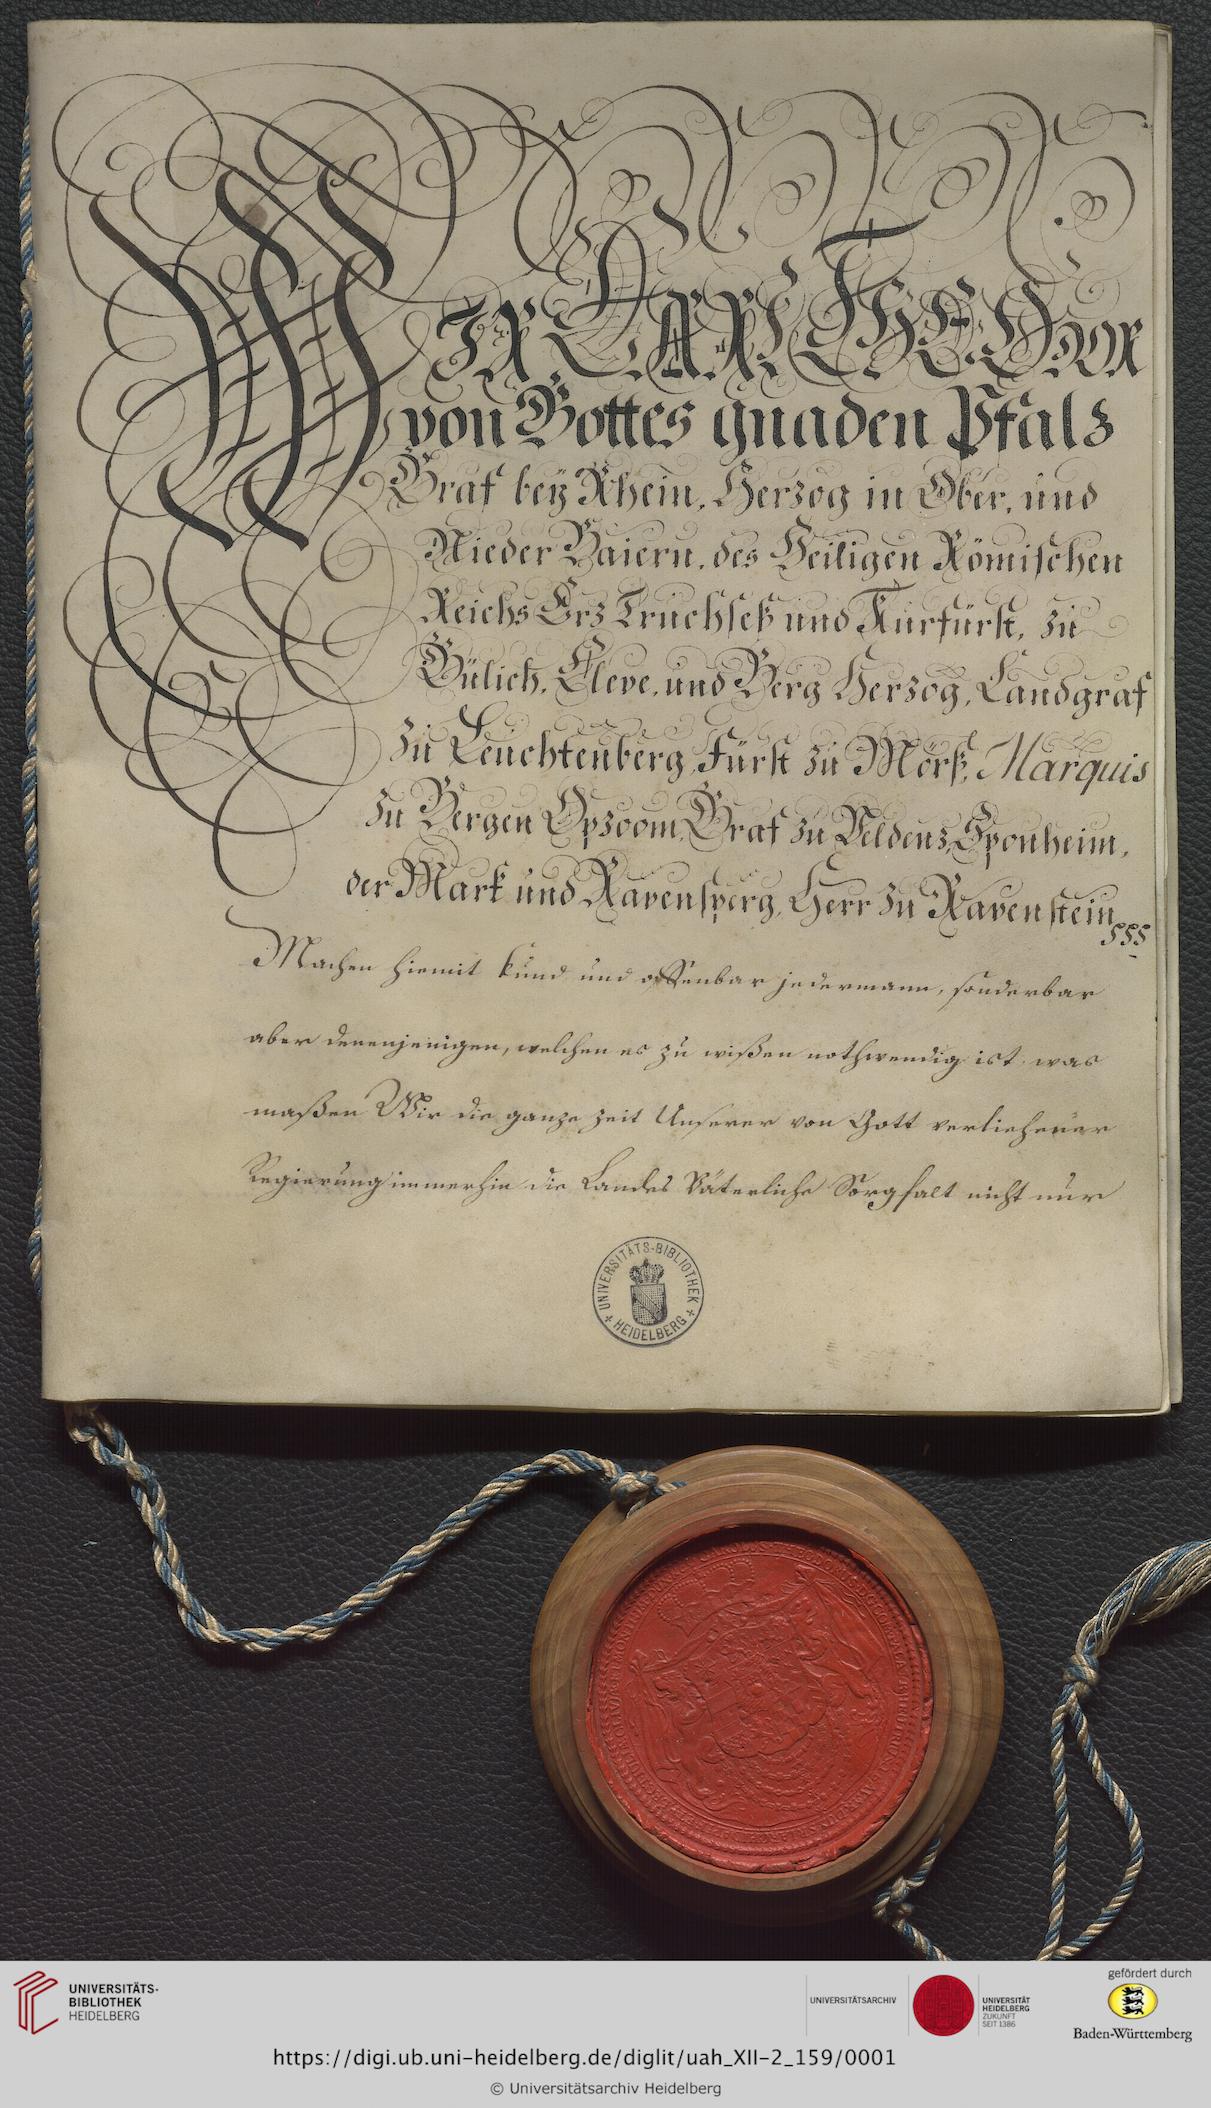 WIR CARL THEODOR
von Gottes gnaden Pfalz
Graf beÿ Rhein, Herzog in Ober, und
Nieder Baiern, des Heiligen Römischen
Reichs Erz Truchseß und Kurfürst, zu
Gülich, Cleve, und Berg Herzog, Landgraf
zu Leuchtenberg, Fürst zu Mörß, Marquis
zu Bergen Opzoom, Graf zu Veldenz, Sponheim,
der Mark und Ravensperg, Herr zu Ravenstein
Machen hiemit kund und offenbar jedermann, sonderbar
aber denenjenigen, welchen es zu wißen nothwendig ist was
maßen Wir die ganze Zeit Unserer von Gott verliehener
Regierung immerhin die Landes Väterliche Sorgfalt nicht nur
UNIVERSITÄTS-BIBLIOTHEK
+ HEIDELBERG +
UNIVERSITÄTS-
BIBLIOTHEK
HEIDELBERG
UNIVERSITÄTSARCHIV
UNIVERSITÄT
HEIDELBERG
ZUKUNFT
SEIT 1386
gefördert durch
Baden-Württemberg
https://digi.ub.uni-heidelberg.de/diglit/uah_XII-2_159/0001
© Universitätsarchiv Heidelberg